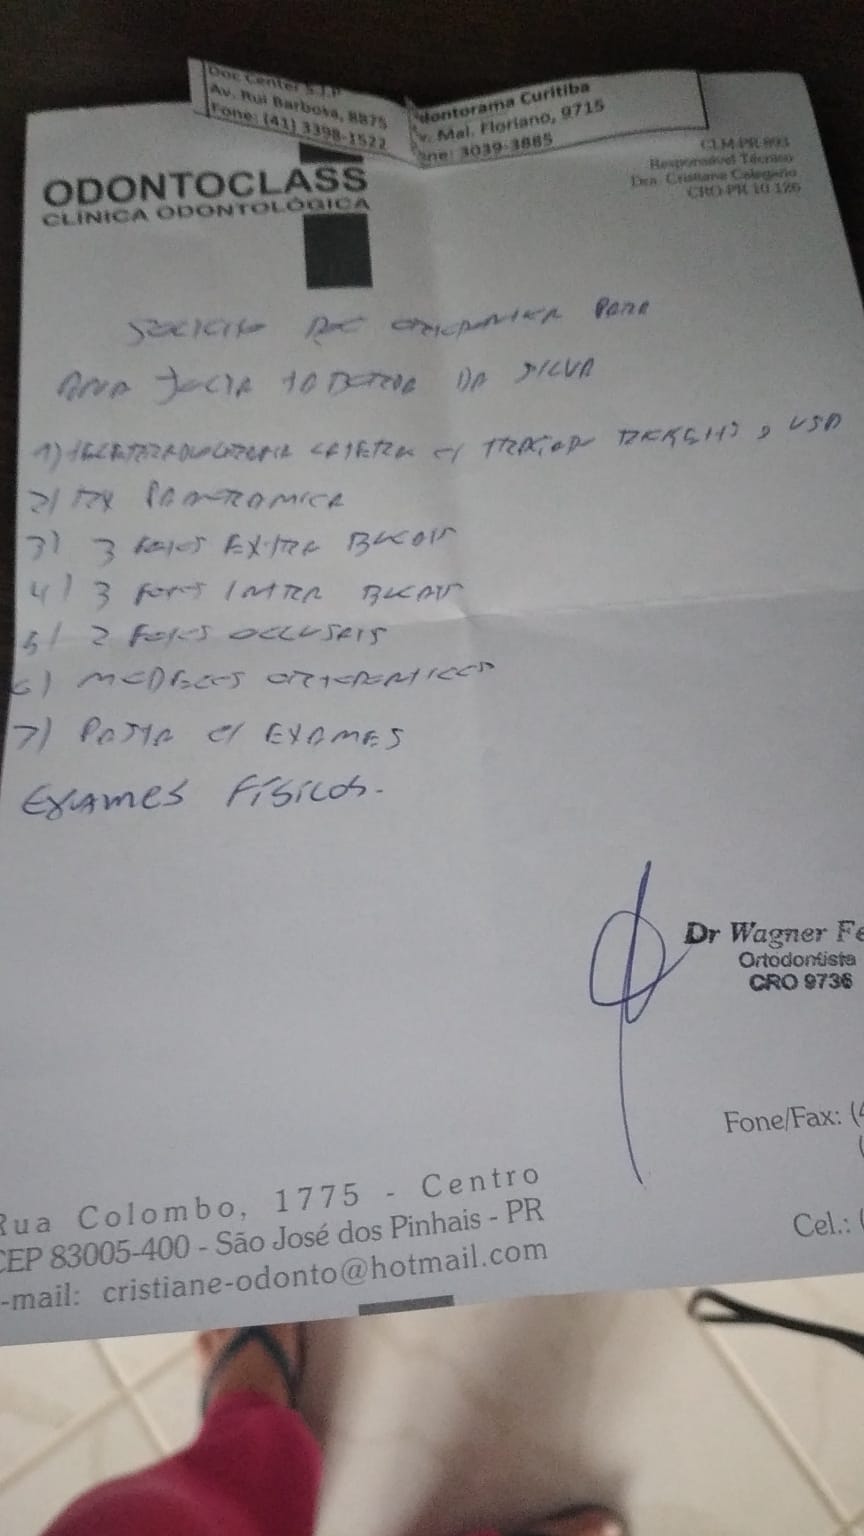 Doc Center S.J.P
Av. Rui Barbosa, 8875
Fone: (41) 3398-1522
dontorama Curitiba
v. Mal. Floriano, 9715
ne: 3039-3885
CLM-PR-893
Responsável Técnico
Dra. Cristiane
CRO-PR 10 126
ODONTOCLASS
CLÍNICA ODONTOLÓGICA
SOLICITO DOC ORTODONTICA PARA
ANA DA SILVA
1) TELERRADIOGRAFIA LATERAL C/ TRAÇADO USP
2) RX PANORAMICA
3) 3 FOTOS EXTRA BUCAIS
4) 3 FOTOS INTRA BUCAIS
5) 2 FOTOS OCLUSAIS
6) MODELOS ORTODONTICOS
7) PASTA C/ EXAMES
EXAMES FÍSICOS.
Dr Wagner Fe
Ortodontista
CRO 9736
Fone/Fax: (4
(
Cel.: (
Rua Colombo, 1775 - Centro
CEP 83005-400 - São José dos Pinhais - PR
-mail: cristiane-odonto@hotmail.com